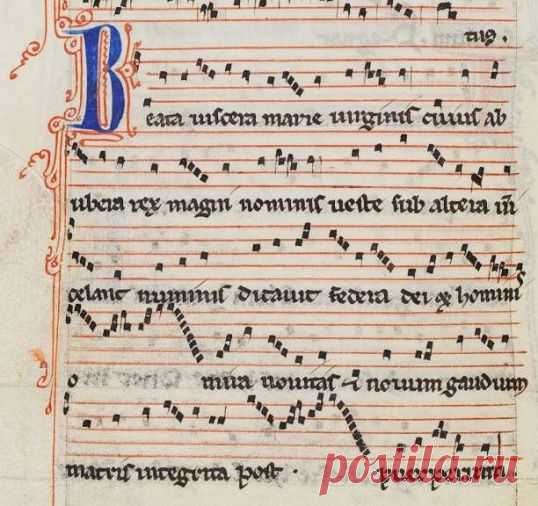 tus.
Beata viscera marie virginis cuius ab
ubera rex magni nominis ueste sub altera uim
celans numinis dictauit federa dei & hominis
o mira nouitas & nouum gaudium
matris integrita post . puerperium.
postila.ru